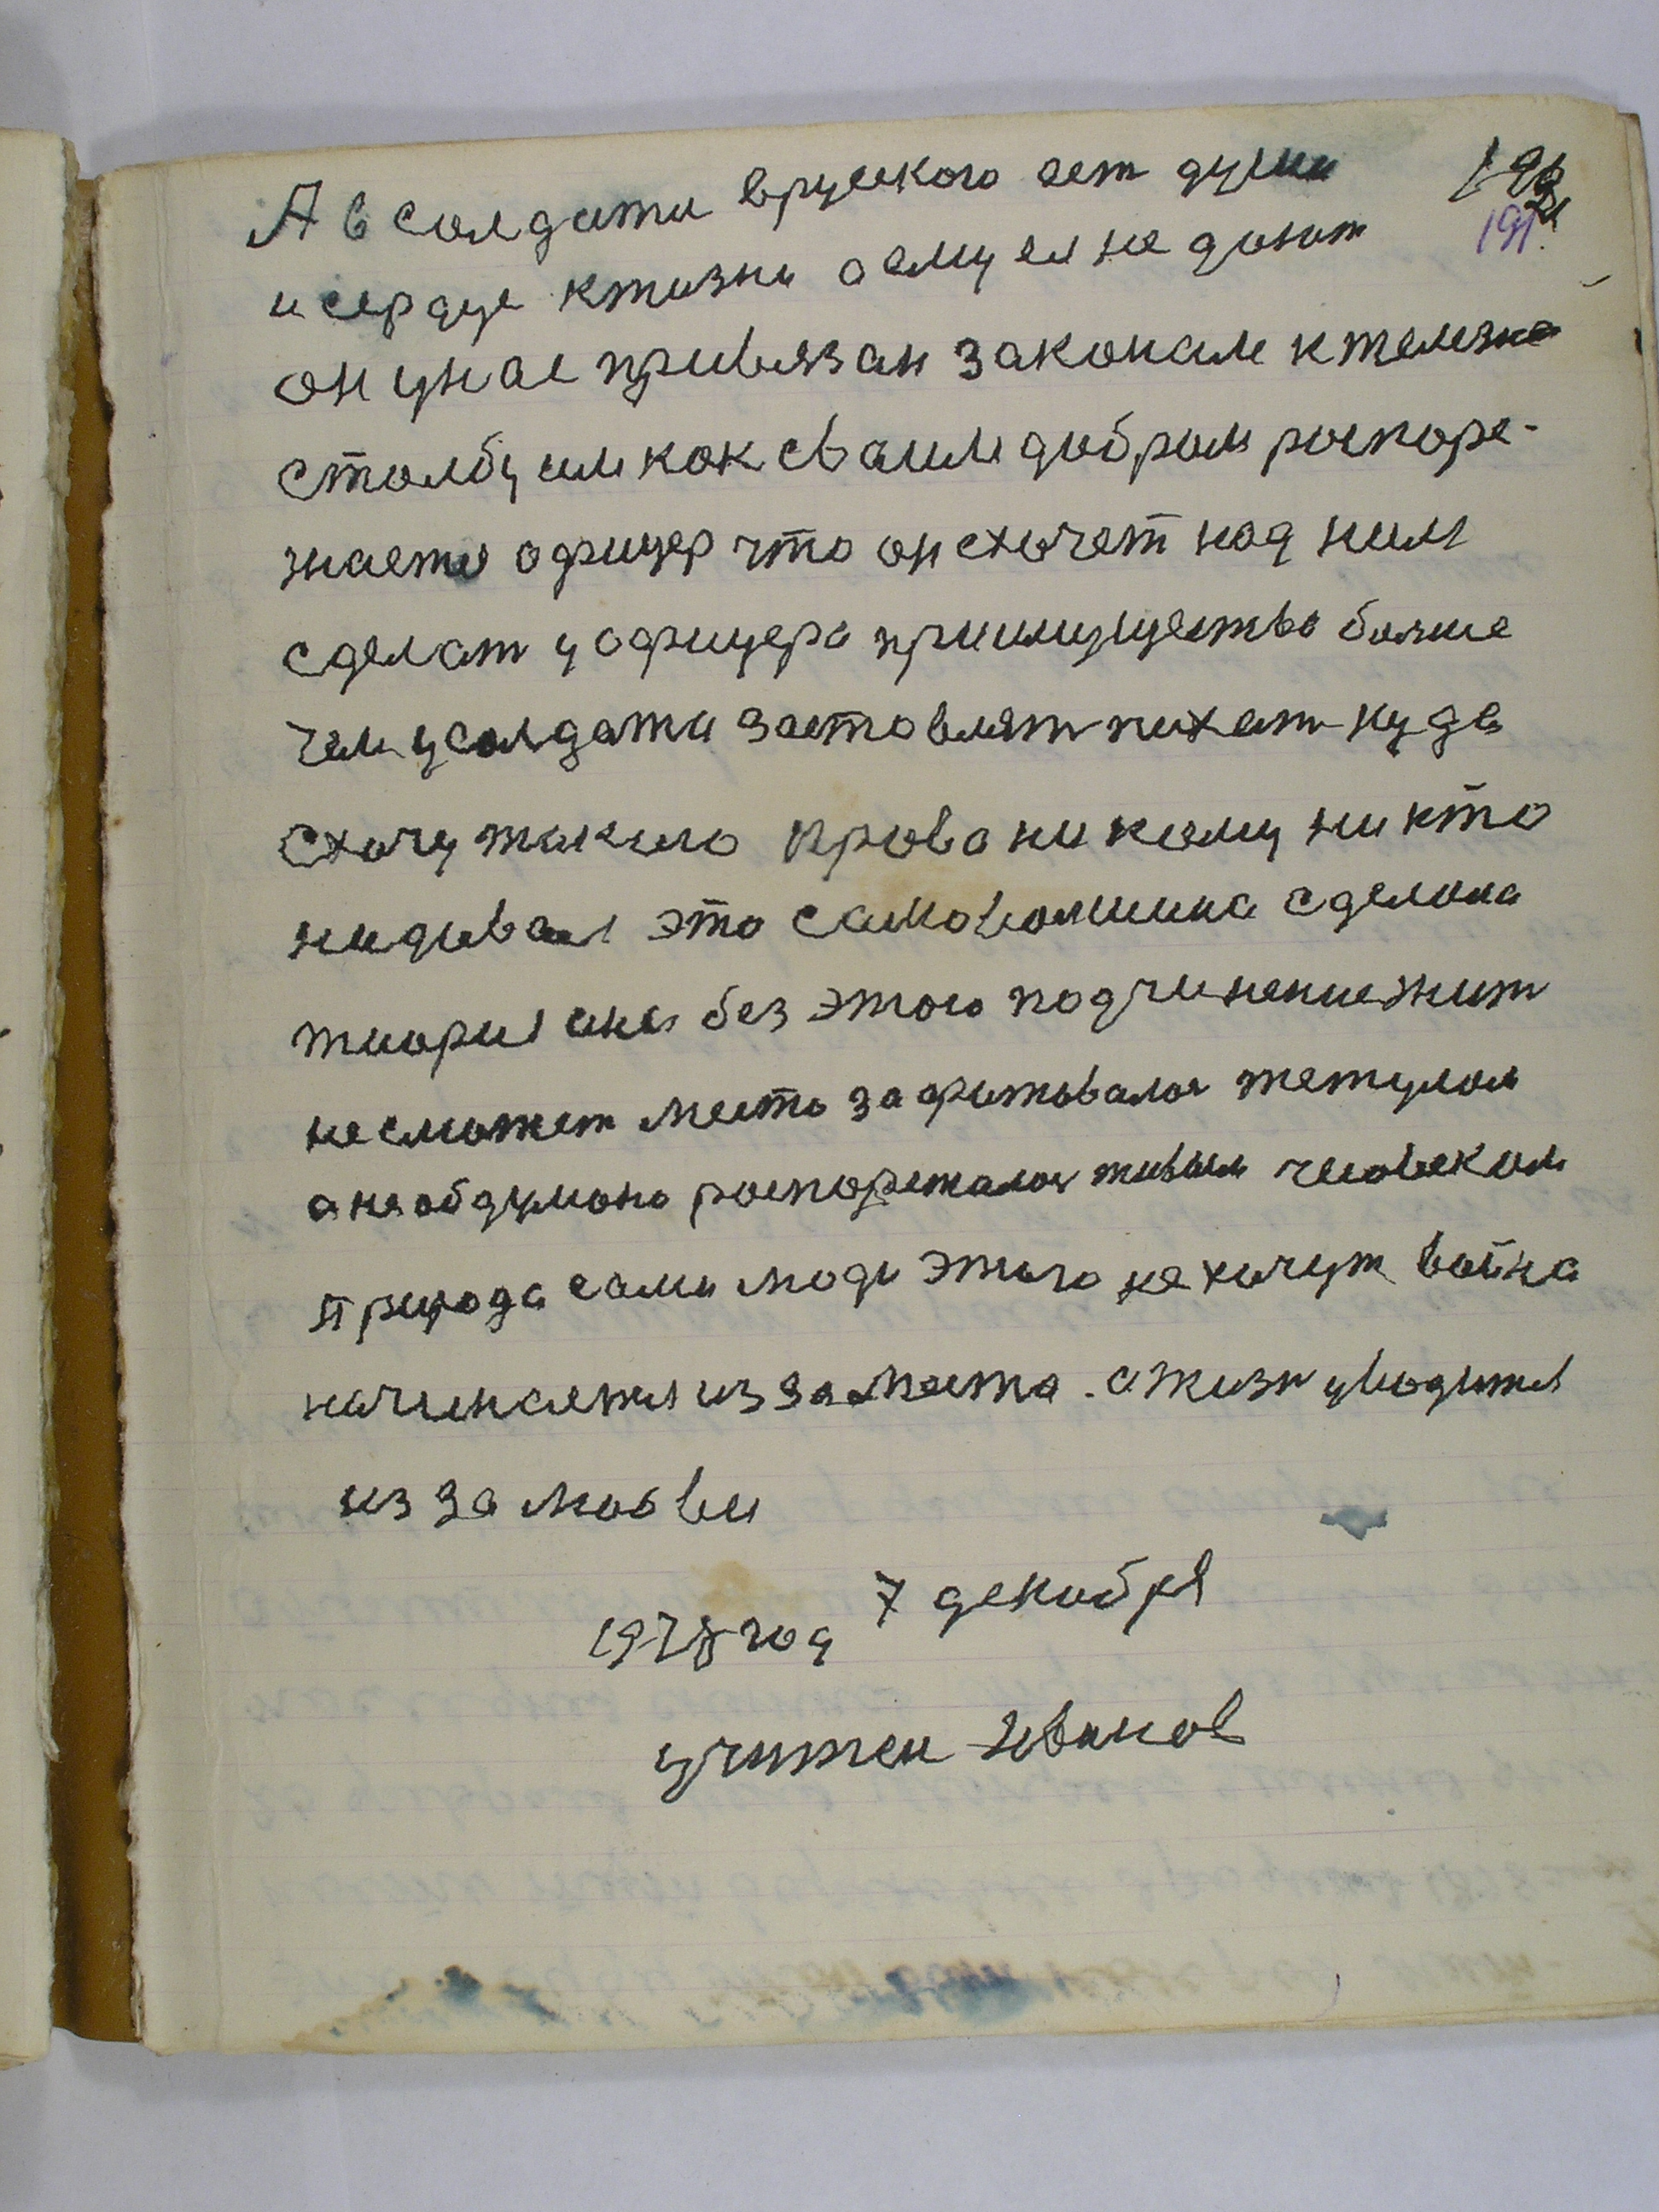 А в солдати вруского ест души
и сердце кжизни а ему ея не дают
он унас привязан законам к железно
столбу им как сваим добром распоре-
жаетя офицер что он схочет над ним
сделат у офицера приимущество болше
чем усолдата заставлят пихат куда
схочу такого права никому никто
нидивал это самоволиина сделана
тиория ана без этого подчинение жит
несможет место зафитовалоя жетулом
а необдумоно распорежалоя живым человеком
природа сами люди этого не хочут война
начинаетя из за места. а жизн уводится
из за любви
1978 год 7 декабря
учител Иванов
191